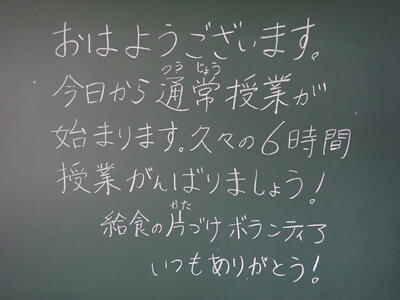 おはようございます。
今日から通常授業が
始まります。久々の6時間
授業がんばりましょう!
給食の片づけボランティア
いつもありがとう!